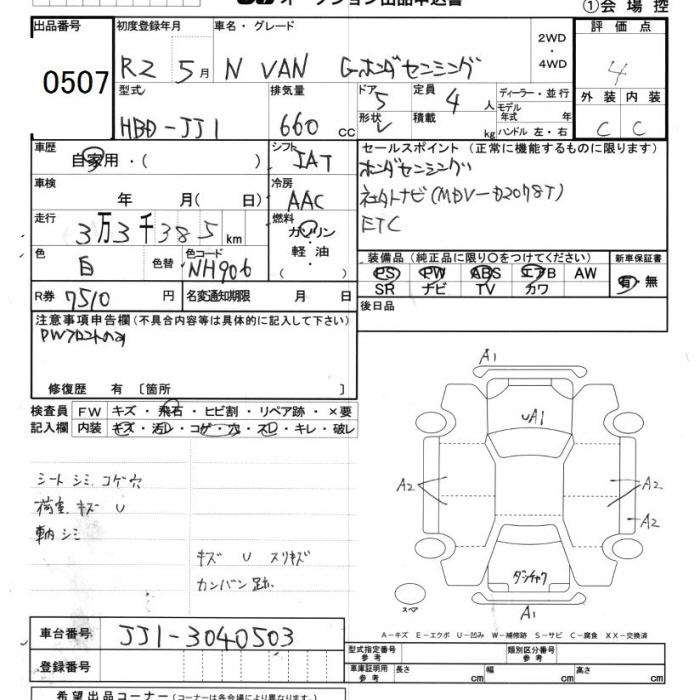 オークション出品申込書
①会場控
出品番号
0507
初度登録年月
R2 5月
車名・グレード
N VAN G・ホンダセンシング
2WD
・
4WD
評価点
4
型式
HBD-JJ1
排気量
660 cc
ドア
5
形状
V
定員
4 人
積載
kg
ディーラー・並行
モデル
年式 年
ハンドル 左・右
外装 内装
C C
車歴
自家用・( )
シフト
IAT
セールスポイント (正常に機能するものに限ります)
ホンダセンシング
社外ナビ(MDV-D207BT)
ETC
車検
年 月( 日)
冷房
AAC
走行
3万3千385 km
燃料
ガソリン
・
軽油
・
( )
色
白
色替
色コード
NH906
装備品(純正品に限り○をつけてください)
PS PW ABS エアB AW
SR ナビ TV カワ
新車保証書
有・無
R券
7510 円
名変通知期限 月 日
後日品
注意事項申告欄(不具合内容等は具体的に記入して下さい)
PWフロントのみ
修復歴 有 [箇所 ]
検査員
記入欄
FW キズ・飛石・ヒビ割・リペア跡・×要
内装 キズ・汚レ・コゲ・穴・スレ・キレ・破レ
シート シミ コゲ穴
荷室 キズ U
車内 シミ
キズ U スリキズ
カンバン跡
A1
UA1
A2
A2
A2
ダンチャク
スペア
A1
A-キズ E-エクボ U-凹み W-補修跡 S-サビ C-腐食 XX-交換済
車台番号
JJ1-3040503
登録番号
型式指定番号
参考
類別区分番号
参考
車庫証明用
参考
長さ cm 幅 cm 高さ cm
希望出品コーナー(コーナーは各会場により異なります)